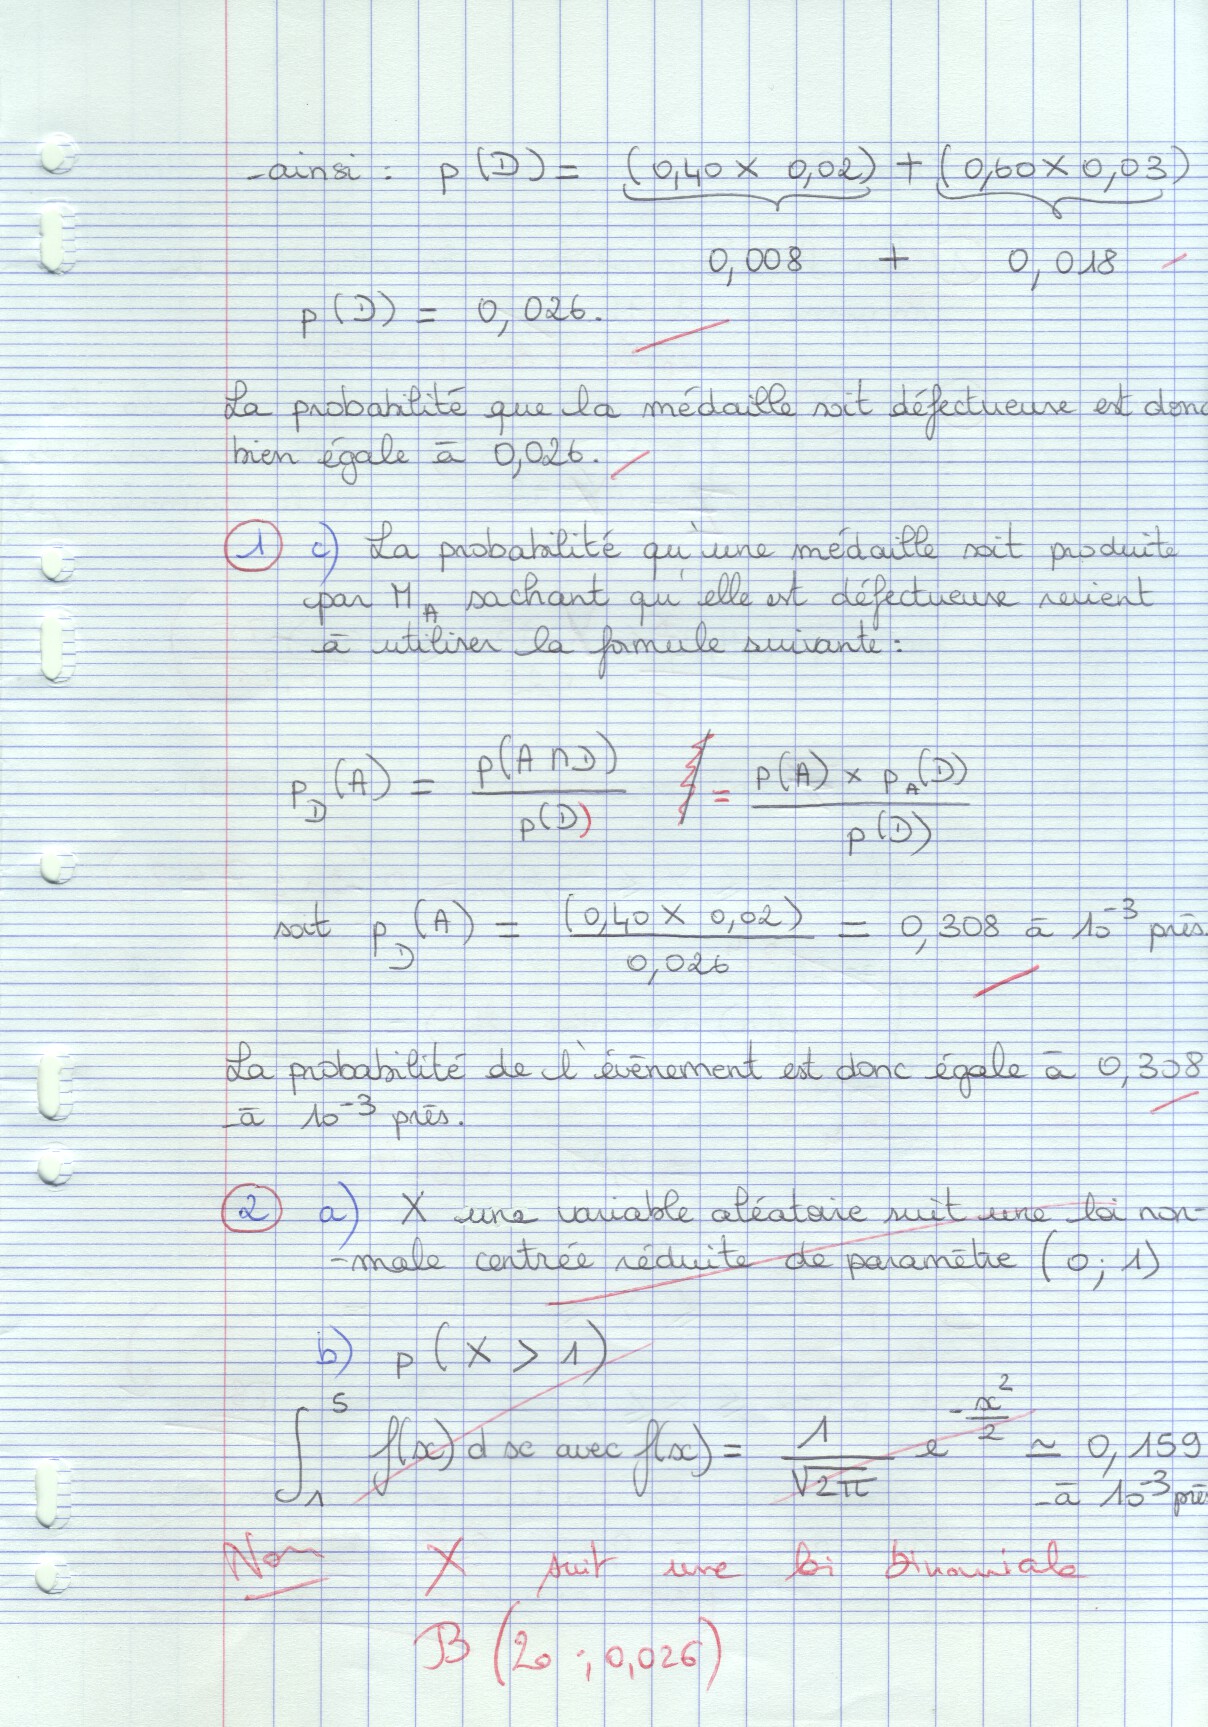 ainsi : p(D) = (0,40 × 0,02) + (0,60 × 0,03)
0,008 + 0,018
p(D) = 0,026.
La probabilité que la médaille soit défectueuse est donc
bien égale à 0,026.
1 c) La probabilité qu'une médaille soit produite
par M_A sachant qu'elle est défectueuse revient
à utiliser la formule suivante :
p_D(A) = p(A∩D) / p(D) = p(A) × p_A(D) / p(D)
soit p_D(A) = (0,40 × 0,02) / 0,026 = 0,308 à 10^-3 près.
La probabilité de l'évènement est donc égale à 0,308
à 10^-3 près.
2 a) X une variable aléatoire suit une loi nor-
-male centrée réduite de paramètre (0 ; 1)
b) p(X > 1)
∫_1^5 f(x) dx avec f(x) = 1/√2π e^(-x²/2) ≃ 0,159
à 10^-3 près
Non X suit une loi binomiale
B(20 ; 0,026)